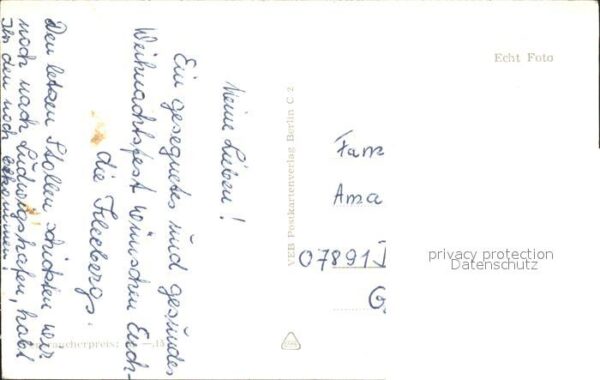 Meine Lieben!
Ein gesegnetes und gesundes
Weihnachtsfest wünschen Euch
die Fleebergs.
Den letzten Stollen schickten wir
noch nach Ludwigshafen, habt
Ihr den noch bekommen!
VEB Postkartenverlag Berlin C 2
Echt Foto
Fam
Ama
07891
G
privacy protection
Datenschutz